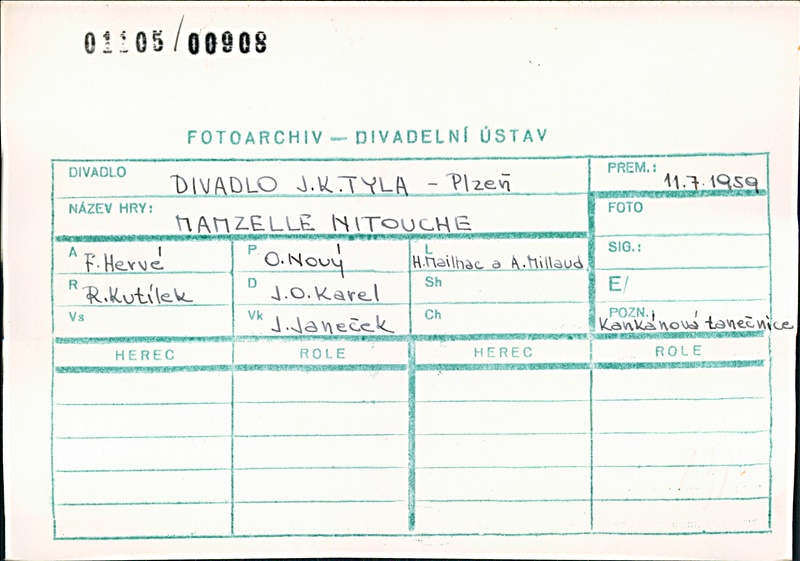 01105/00908
FOTOARCHIV — DIVADELNÍ ÚSTAV
DIVADLO DIVADLO J.K.TYLA - Plzeň PREM.: 11.7.1959
NÁZEV HRY: MAMZELLE NITOUCHE FOTO
A F.Hervé P O.Nový L H.Mailhac a A.Millaud SIG.:
R R.Kutílek D J.O.Karel Sh E/
Vs Vk J.Janeček Ch POZN. Kankánová tanečnice
HEREC ROLE HEREC ROLE